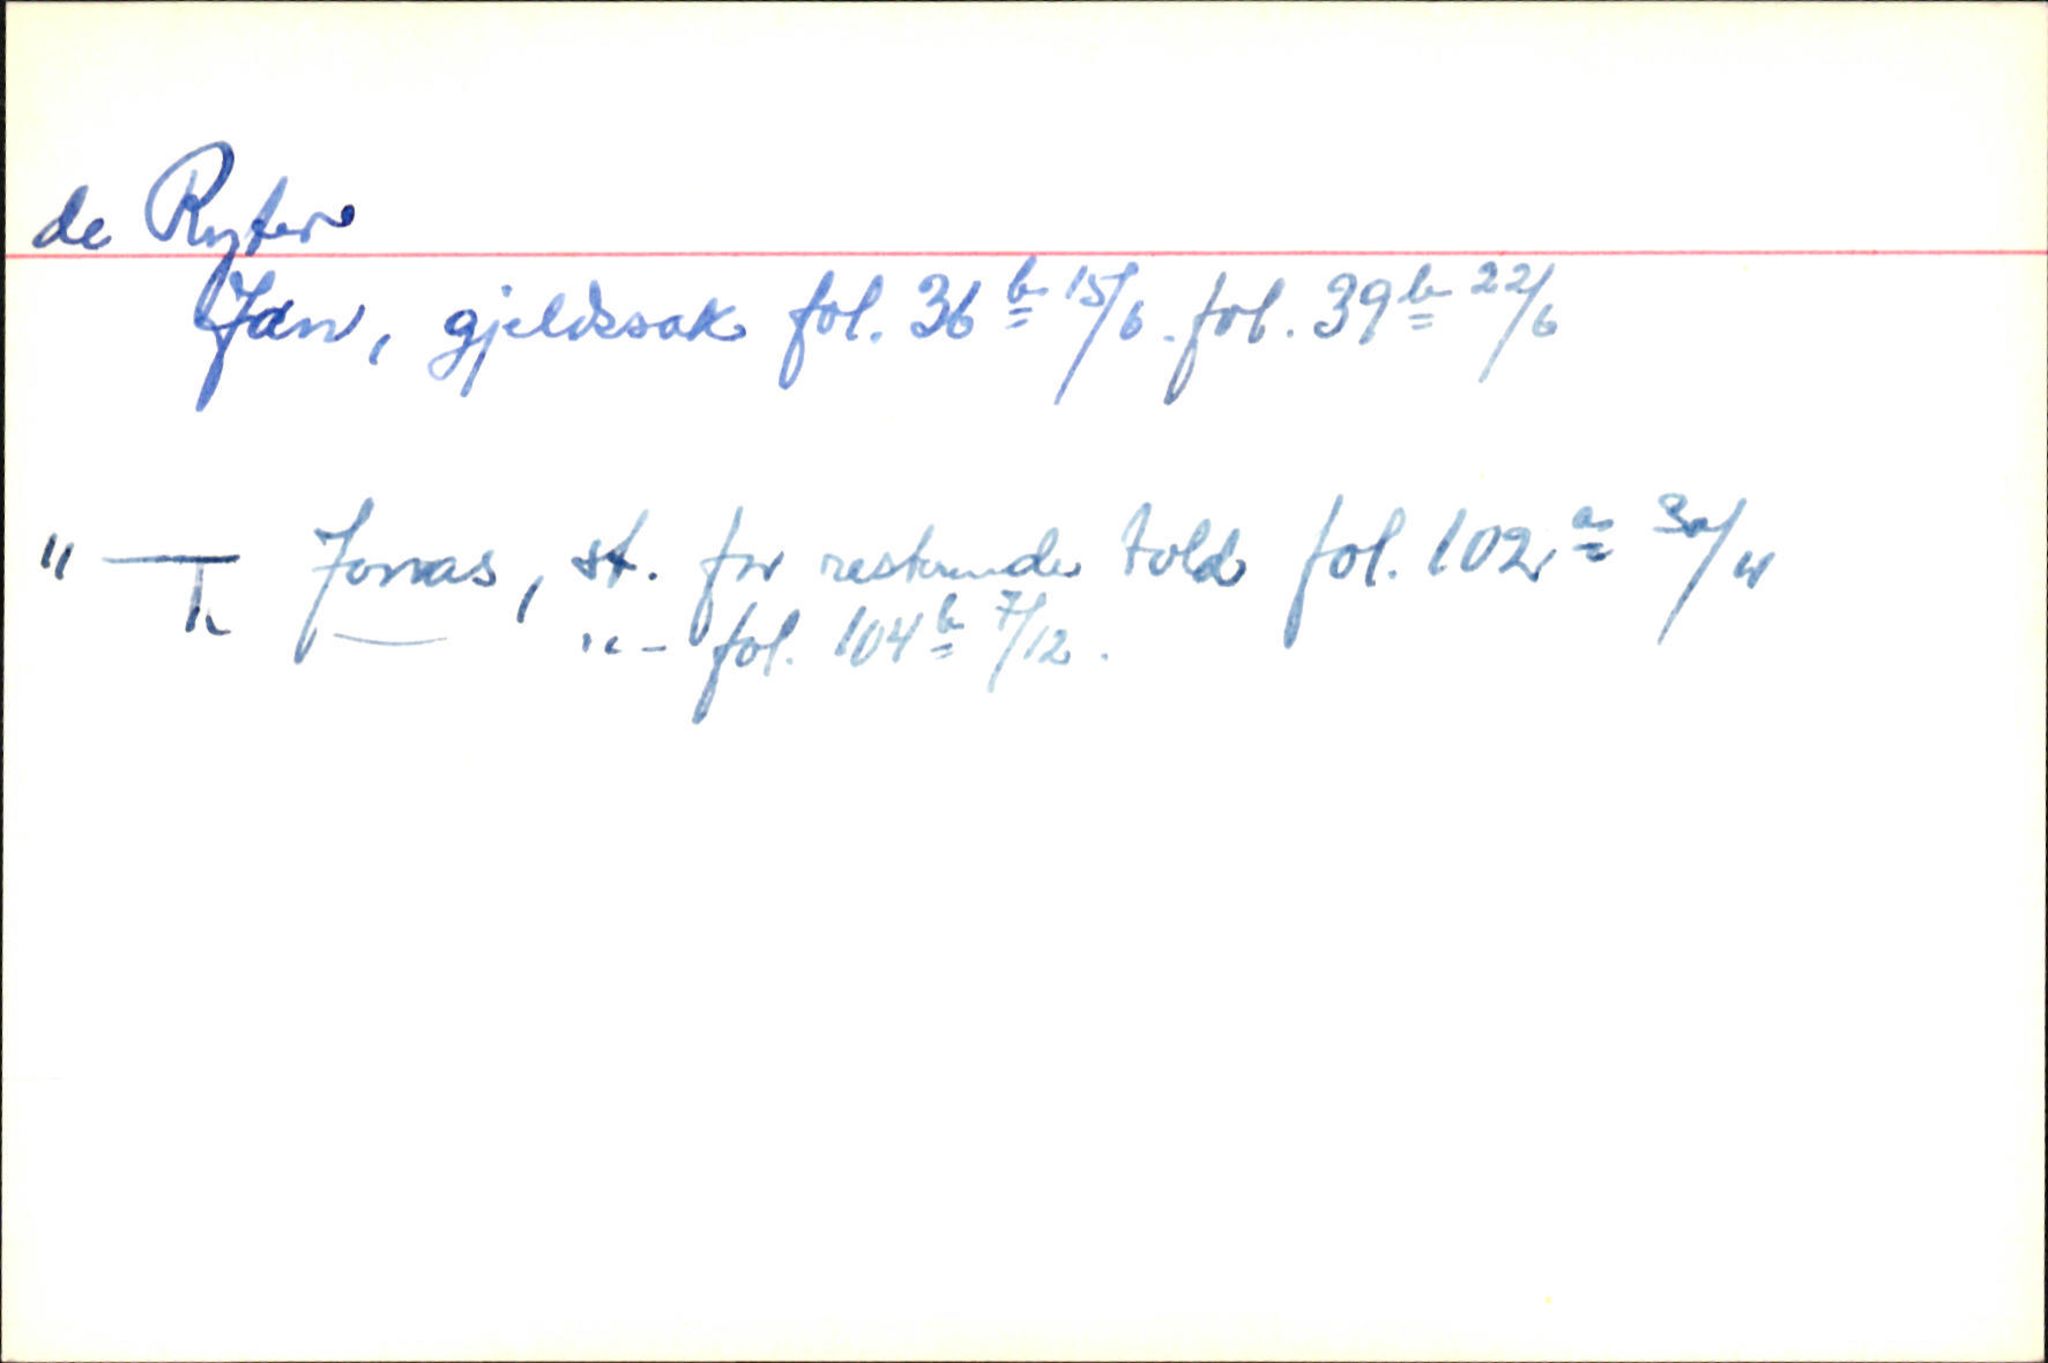 de Ryter
Jan, gjeldssak fol. 36 b 15/6. fol. 39 b 22/6
" — Jonas, st. for resterende told fol. 102 a 30/11
"- fol. 104 b 7/12.